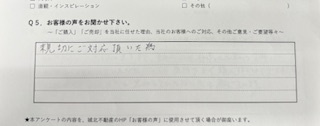 □ 直観・インスピレーション　□ その他（
Q５．お客様の声をお聞かせ下さい。
～「ご購入」「ご売却」を当社に任せた理由、当社のお客様へのご対応、その他ご意見・ご要望等々～
親切にご対応頂いた為
★本アンケートの内容を、湖北不動産のHP「お客様の声」に使用させて頂く場合が御座います。